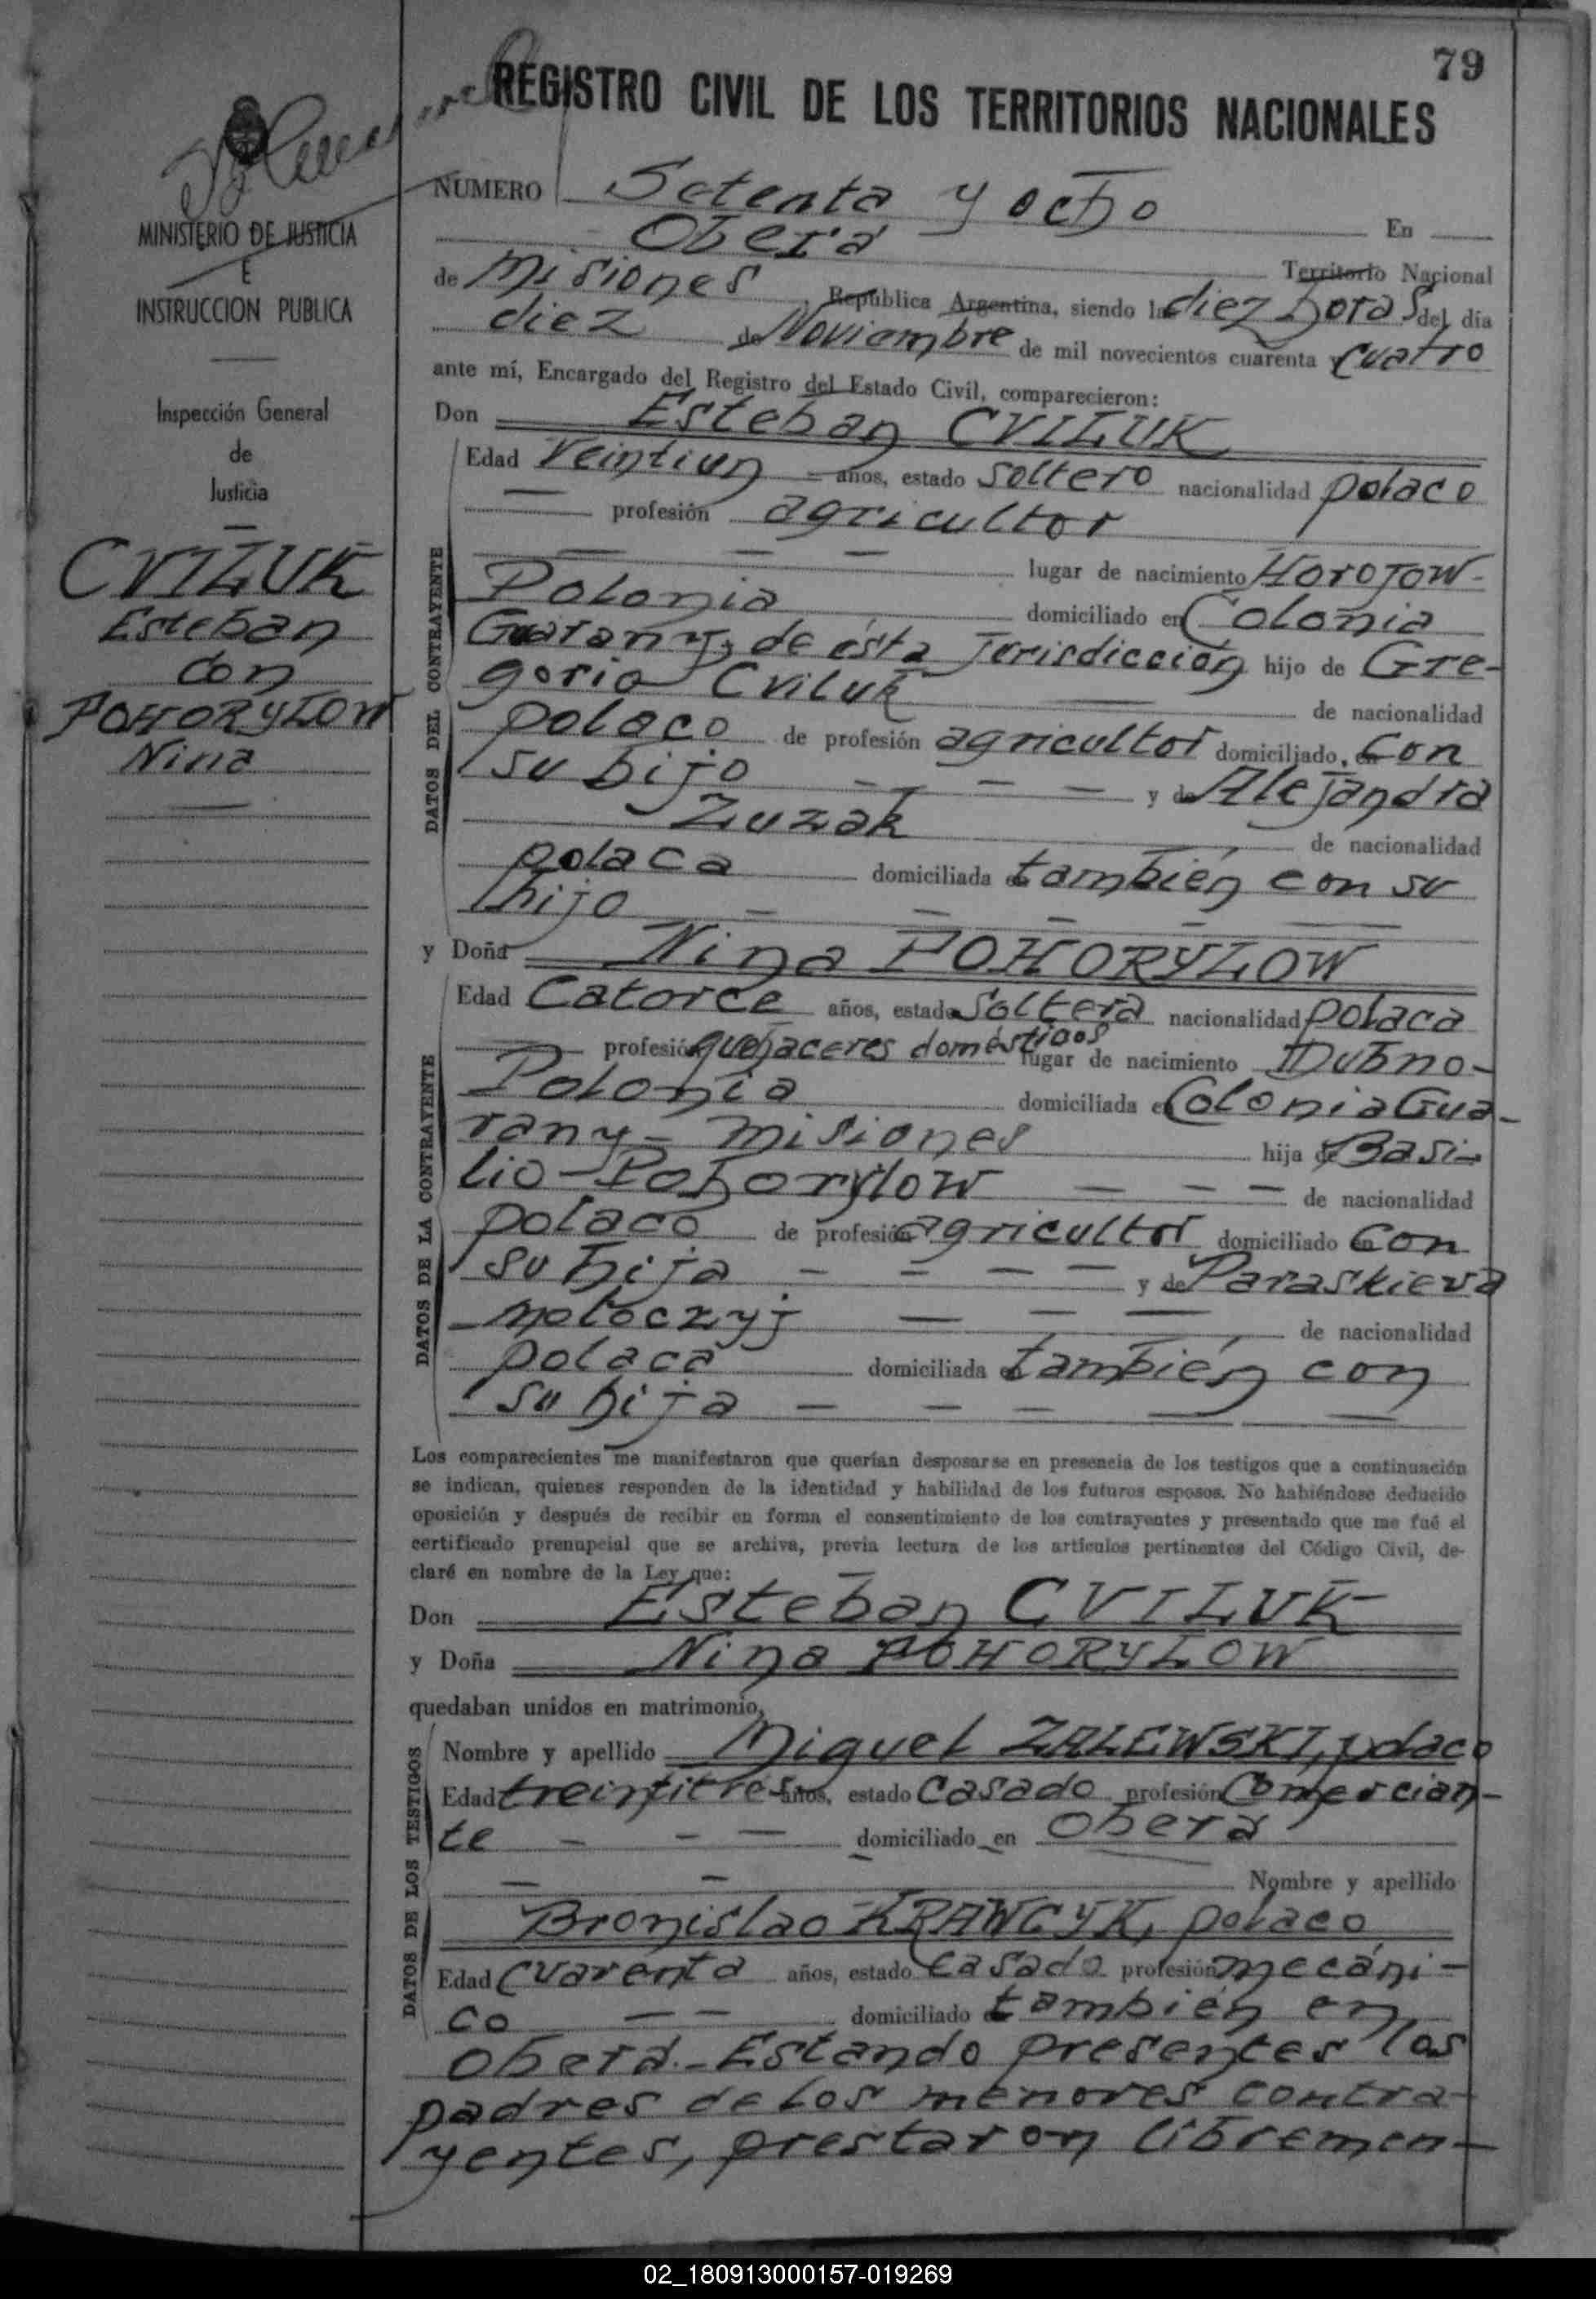 79
REGISTRO CIVIL DE LOS TERRITORIOS NACIONALES
MINISTERIO DE JUSTICIA
E
INSTRUCCION PUBLICA
Inspección General
de
Justicia
CVILUK
Esteban
con
POHORYLOW
Nina
NUMERO Setenta y ocho En
Oberá Territorio Nacional
de Misiones República Argentina, siendo las diez horas del día
diez de Noviembre de mil novecientos cuarenta y cuatro
ante mí, Encargado del Registro del Estado Civil, comparecieron:
Don Esteban CVILUK
DATOS DEL CONTRAYENTE
Edad Veintiun años, estado soltero nacionalidad polaco
profesión agricultor
lugar de nacimiento Horojow-
Polonia domiciliado en Colonia
Guarany, de ésta jurisdicción hijo de Gre-
gorio Cviluk de nacionalidad
polaco de profesión agricultor domiciliado en con
su hijo y de Alejandra
Zuzak de nacionalidad
polaca domiciliada en también con su
hijo
y Doña Nina POHORYLOW
DATOS DE LA CONTRAYENTE
Edad Catorce años, estado soltera nacionalidad polaca
profesión quehaceres domésticos lugar de nacimiento Dubno-
Polonia domiciliada en Colonia Gua-
rany- Misiones hija de Basi-
lio Pohorylow de nacionalidad
polaco de profesión agricultor domiciliado en con
su hija y de Paraskieva
Motoczyj de nacionalidad
polaca domiciliada en también con
su hija
Los comparecientes me manifestaron que querían desposarse en presencia de los testigos que a continuación
se indican, quienes responden de la identidad y habilidad de los futuros esposos. No habiéndose deducido
oposición y después de recibir en forma el consentimiento de los contrayentes y presentado que me fué el
certificado prenupcial que se archiva, previa lectura de los artículos pertinentes del Código Civil, de-
claré en nombre de la Ley que:
Don Esteban CVILUK
y Doña Nina POHORYLOW
quedaban unidos en matrimonio,
DATOS DE LOS TESTIGOS
Nombre y apellido Miguel ZALEWSKI, polaco
Edad treintitres años, estado casado profesión Comercian-
te domiciliado en Oberá
Nombre y apellido
Bronislao KRAWCYK, polaco
Edad cuarenta años, estado casado profesión mecáni-
co domiciliado en también en
Oberá.- Estando presentes los
padres de los menores contra-
yentes, prestaron libremen-
02_180913000157-019269